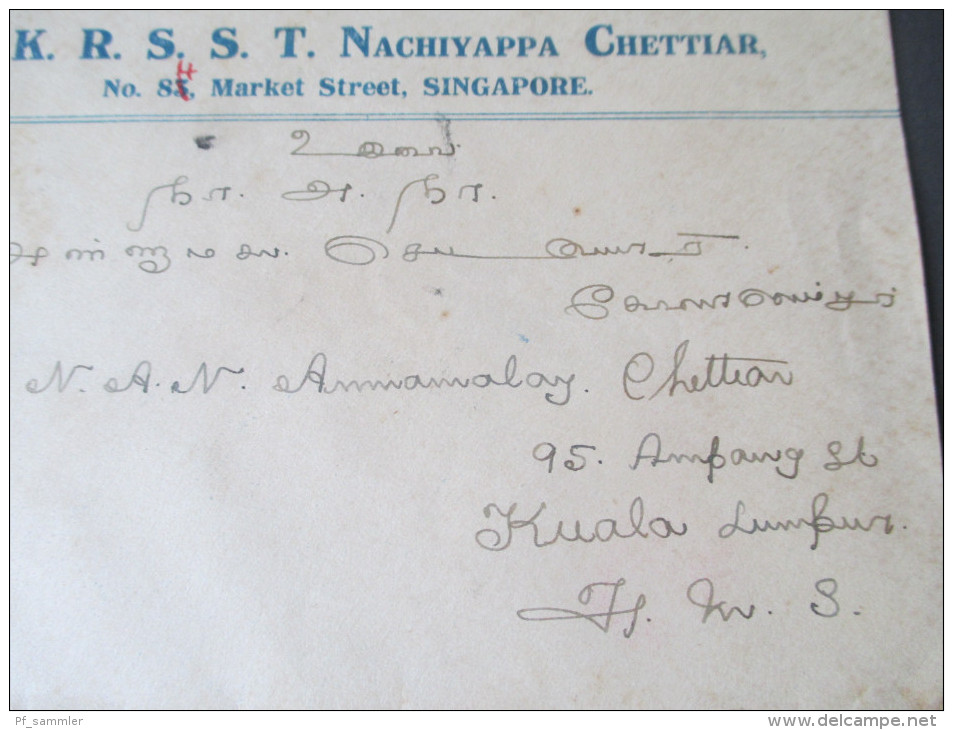 K. R. S. S. T. NACHIYAPPA CHETTIAR,
No. 84, Market Street, SINGAPORE.
உ
நா. அ. நா.
N. A. N. Annamalay. Chettiar
95. Ampang St
Kuala Lumpur.
F. M. S.
Pf_sammler
www.delcampe.net